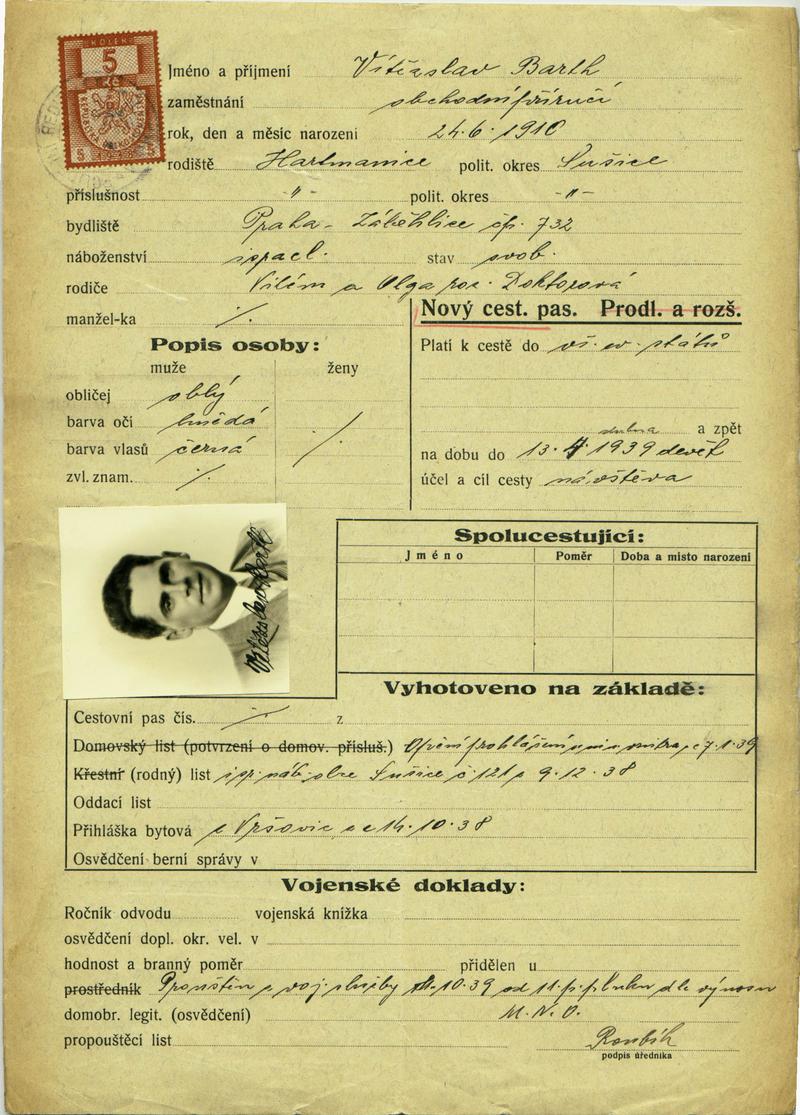 KOLEK
5
Jméno a příjmení Vítězslav Barth
zaměstnání obchodní příručí
rok, den a měsíc narození 24.6.1910
rodiště Hartmanice polit. okres Sušice
příslušnost -"- polit. okres -"-
bydliště Praha - Záběhlice čp. 732
náboženství israel. stav svob.
rodiče Vilém a Olga roz. Doktorová
manžel-ka ·/.
Nový cest. pas. Prodl. a rozš.
Popis osoby:
muže ženy
obličej oblý
barva očí hnědá
barva vlasů černá ·/.
zvl. znam. ·/.
Platí k cestě do vš. ev. států
dubna a zpět
na dobu do 13. 4 1939 devět
účel a cíl cesty návštěva
Vítězslav Barth
Spolucestující:
Jméno Poměr Doba a místo narození
Vyhotoveno na základě:
Cestovní pas čís. ·/. z
Domovský list (potvrzení o domov. přísluš.) 7.1.39
Křestní (rodný) list isr. náb. obce Sušice č. 121 z 9.12.38
Oddací list
Přihláška bytová z Vršovic ze 14.10.38
Osvědčení berní správy v
Vojenské doklady:
Ročník odvodu vojenská knížka
osvědčení dopl. okr. vel. v
hodnost a branný poměr přidělen u
prostředník Propuštěn z voj. služby 10.39 od 11. p. pluku dle výnosu
domobr. legit. (osvědčení) M.N.O.
propouštěcí list Roubík
podpis úředníka